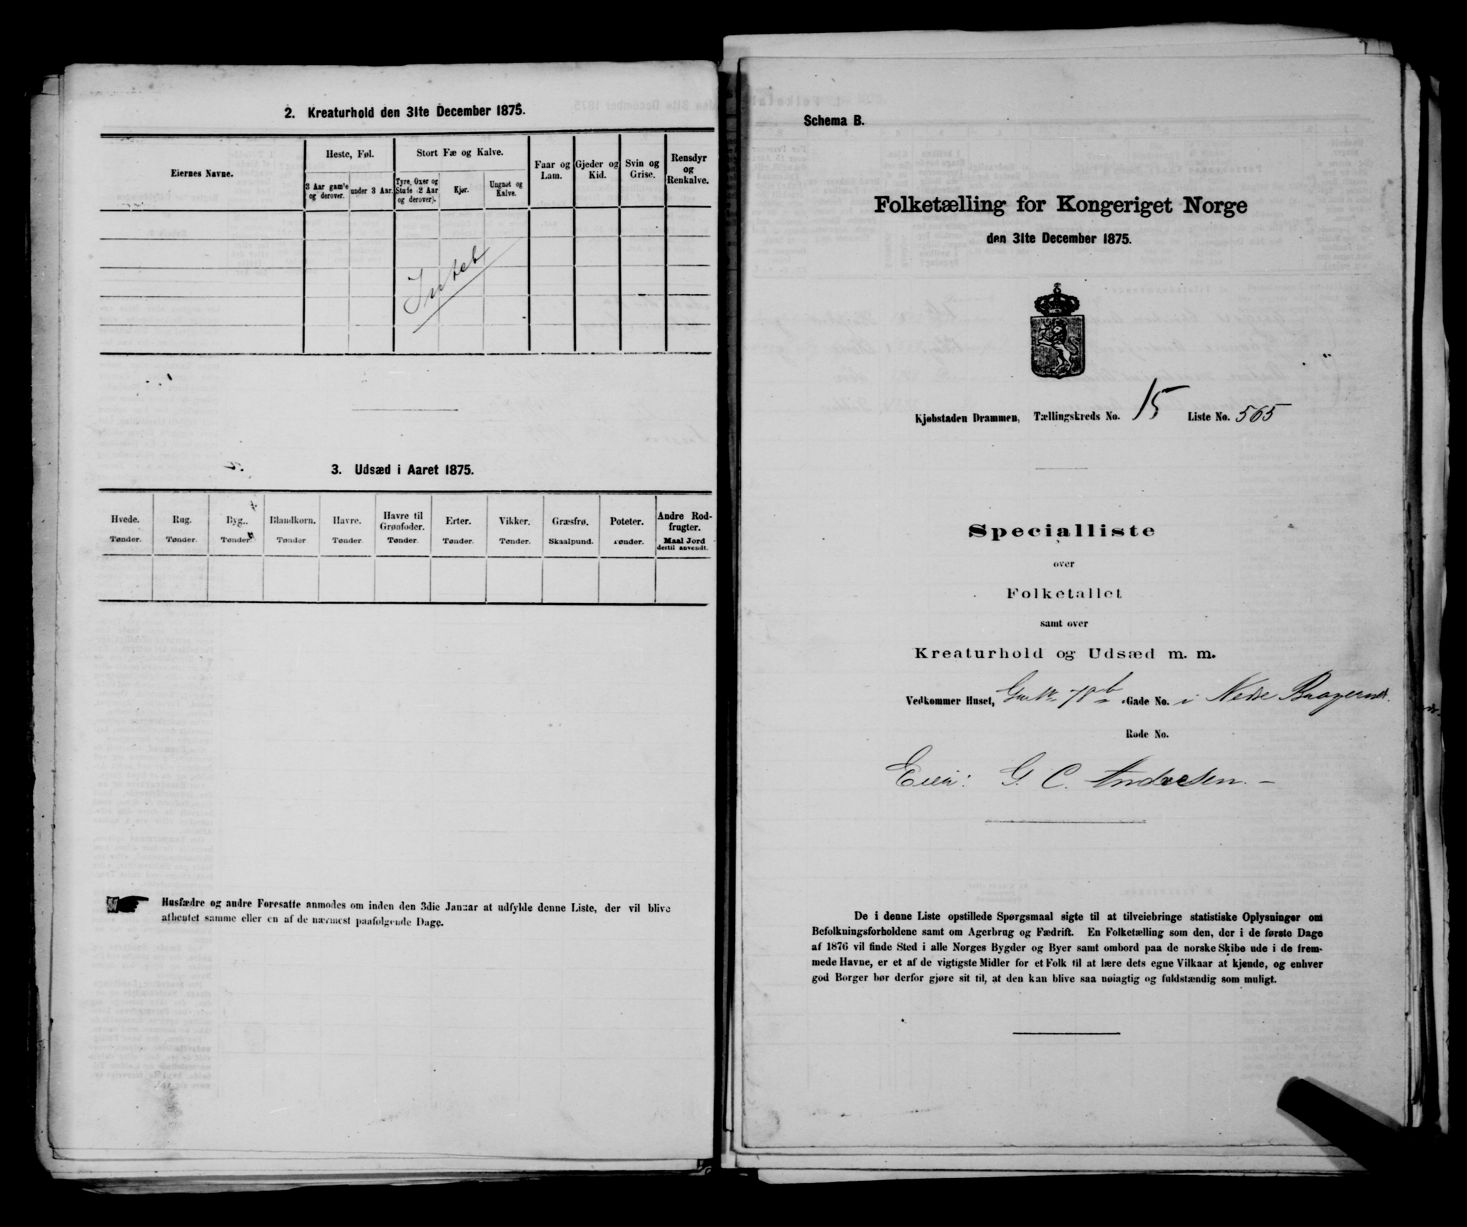 2. Kreaturhold den 31te December 1875.
Eiernes Navne.
Heste, Føl.
3 Aar gam'e og derover.
under 3 Aar.
Stort Fæ og Kalve.
Tyre, Oxer og Stute (2 Aar og derover).
Kjør.
Ungnøt og Kalve.
Faar og Lam.
Gjeder og Kid.
Svin og Grise.
Rensdyr og Renkalve.
Intet
3. Udsæd i Aaret 1875.
Hvede. Tønder.
Rug. Tønder.
Byg. Tønder.
Blandkorn. Tønder
Havre. Tønder.
Havre til Grønfoder. Tønder.
Erter. Tønder.
Vikker. Tønder.
Græsfrø. Skaalpund.
Poteter. Tønder.
Andre Rodfrugter. Maal Jord dertil anvendt.
Husfædre og andre Foresatte anmodes om inden den 3die Januar at udfylde denne Liste, der vil blive
afhentet samme eller en af de nærmest paafølgende Dage.
Schema B.
Folketælling for Kongeriget Norge
den 31te December 1875.
Kjøbstaden Drammen, Tællingskreds No. 15 Liste No. 565
Specialliste
over
Folketallet
samt over
Kreaturhold og Udsæd m. m.
Vedkommer Huset, 70b Gade No. i Nedre
Rode No.
Eier: G. C. Andresen.
De i denne Liste opstillede Spørgsmaal sigte til at tilveiebringe statistiske Oplysninger om
Befolkningsforholdene samt om Agerbrug og Fædrift. En Folketælling som den, der i de første Dage
af 1876 vil finde Sted i alle Norges Bygder og Byer samt ombord paa de norske Skibe ude i de frem-
mede Havne, er et af de vigtigste Midler for et Folk til at lære dets egne Vilkaar at kjende, og enhver
god Borger bør derfor gjøre sit til, at den kan blive saa nøiagtig og fuldstændig som muligt.